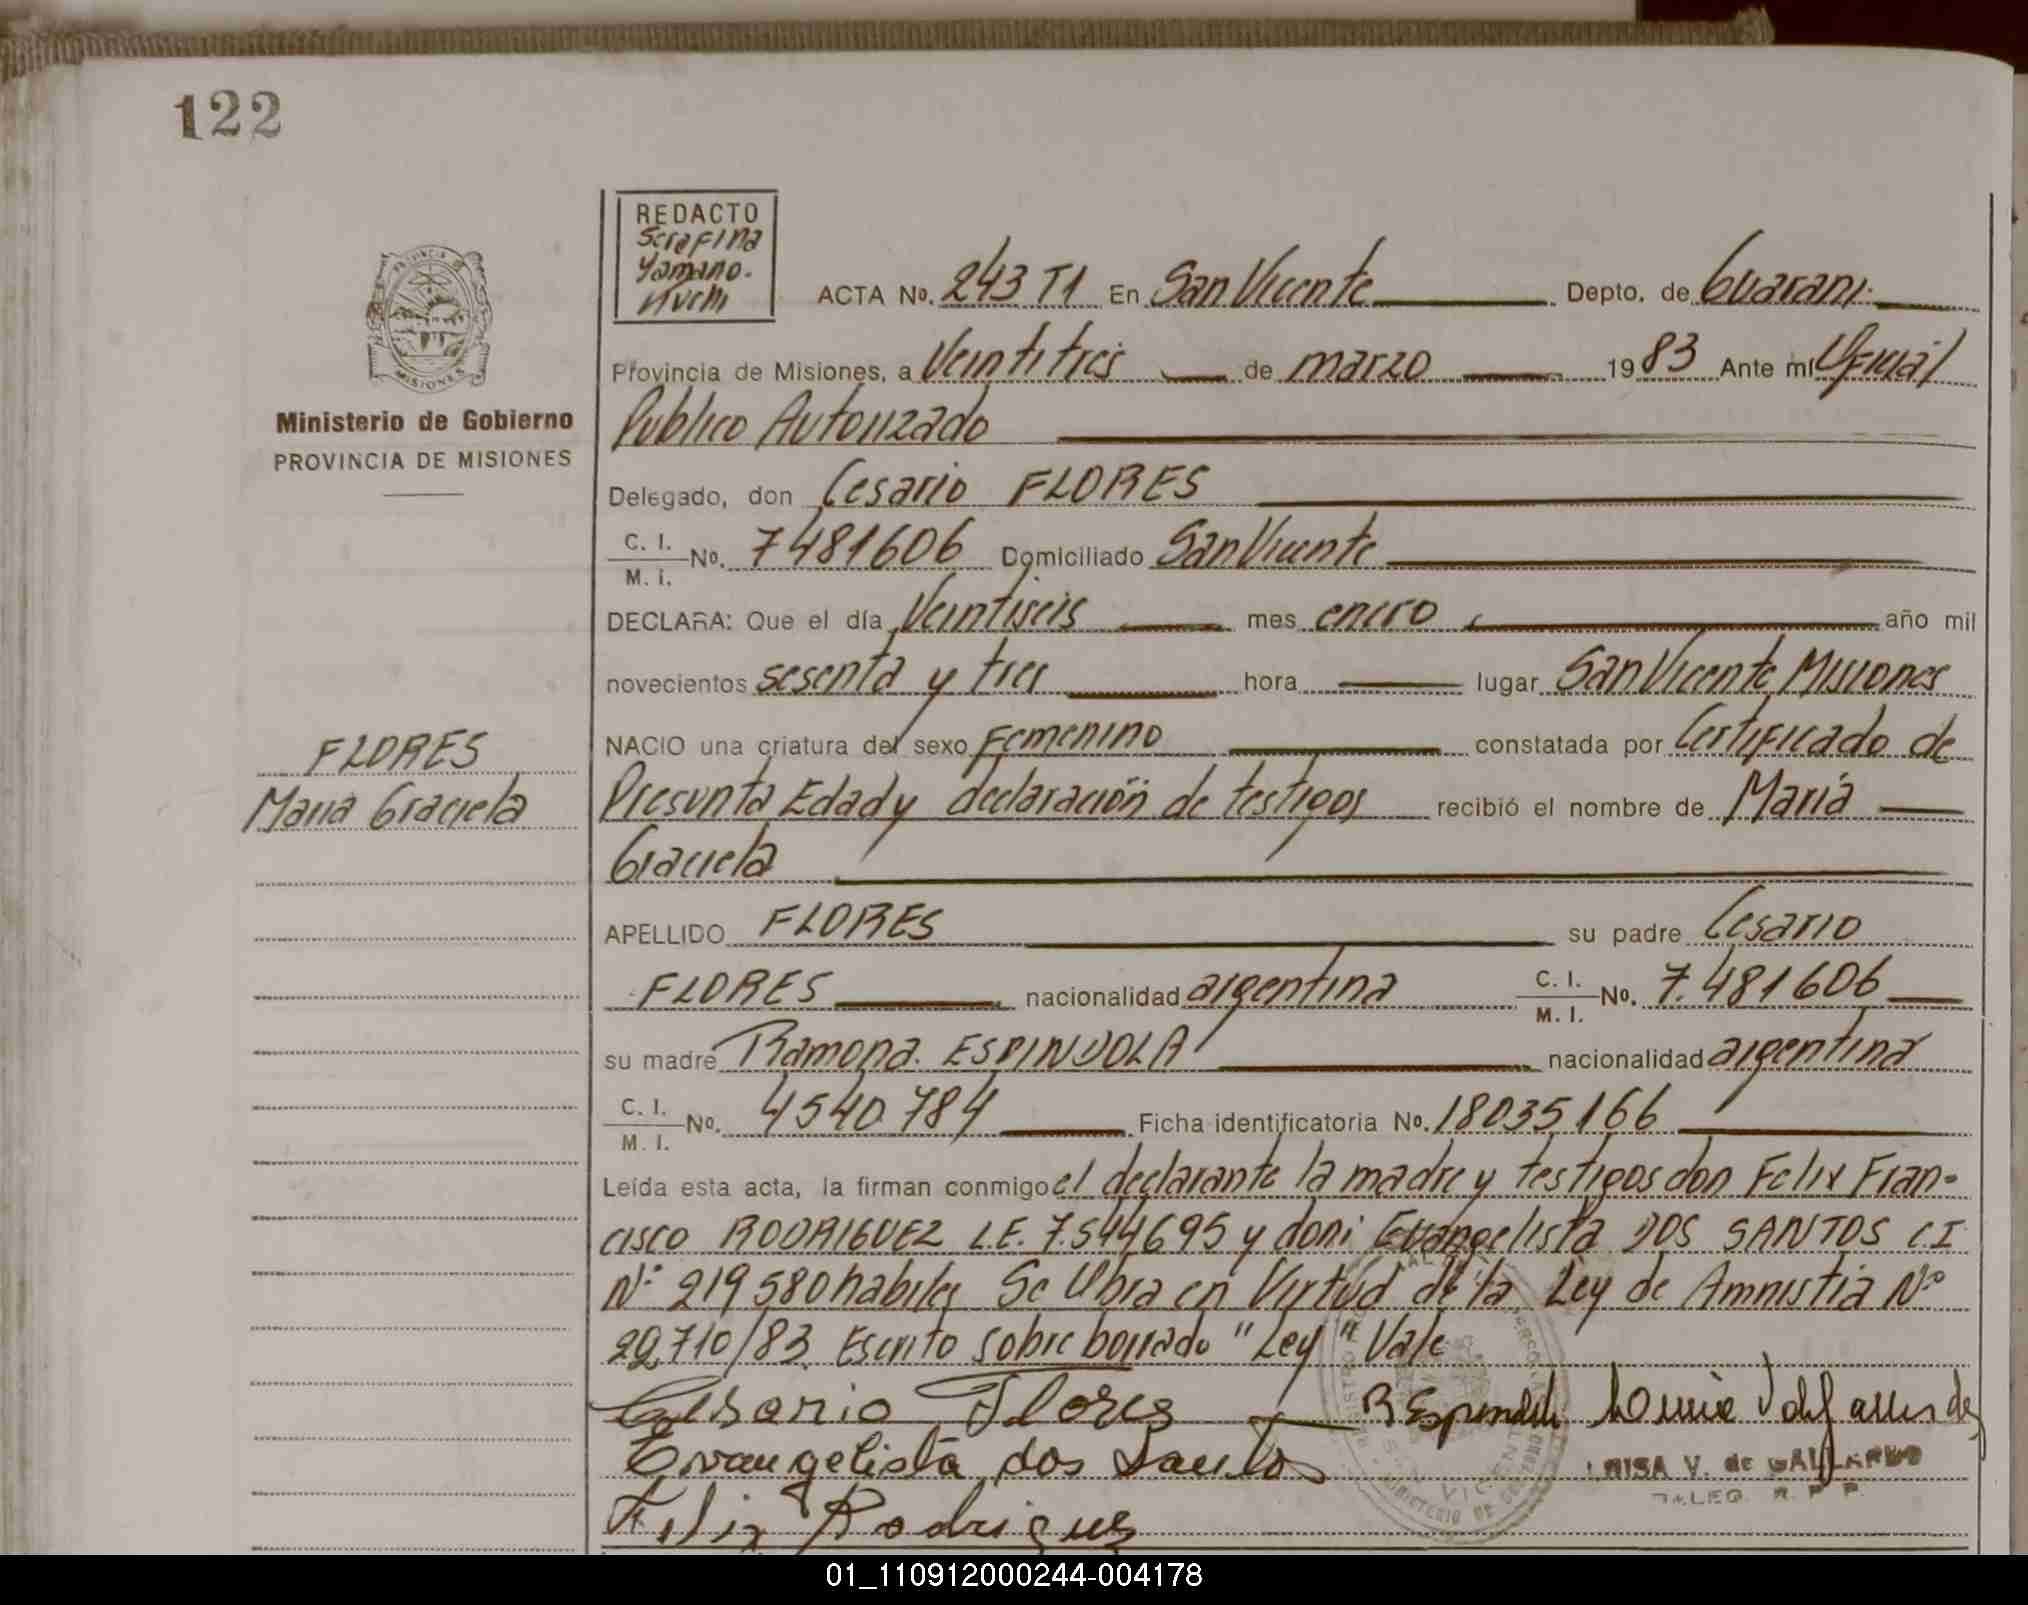 122
REDACTO
Serafina
Yamano.
ACTA No. 243 T1 En San Vicente Depto. de Guarani
PROVINCIA DE
MISIONES
Provincia de Misiones, a Veintitres de marzo 1983 Ante mí Oficial
Ministerio de Gobierno
PROVINCIA DE MISIONES
Publico Autorizado
Delegado, don Cesario FLORES
C. I.
M. I. No. 7481606 Domiciliado San Vicente
DECLARA: Que el día Veintiseis mes enero año mil
novecientos sesenta y tres hora lugar San Vicente Misiones
NACIO una criatura del sexo Femenino constatada por Certificado de
FLORES
Maria Graciela
Presunta Edad y declaración de testigos recibió el nombre de Maria
Graciela
APELLIDO FLORES su padre Cesario
FLORES nacionalidad argentina C. I. M. I. No. 7.481606
su madre Ramona. ESPINDOLA nacionalidad argentina
C. I.
M. I. No. 4540784 Ficha identificatoria No. 18035166
Leída esta acta, la firman conmigo el declarante la madre y testigos don Felix Fran-
cisco RODRIGUEZ L.E. 7.544695 y don Evangelista DOS SANTOS CI
Nº 219580 habiles Se labra en Virtud de la Ley de Amnistia Nº
22,710/83. Escrito sobre borrado "Ley" Vale
Cesario Flores R Espindola
Evangelista dos Santos
LUISA V. de GALLARDO
DELEG. R. P. P.
Felix Rodrigues
01_110912000244-004178